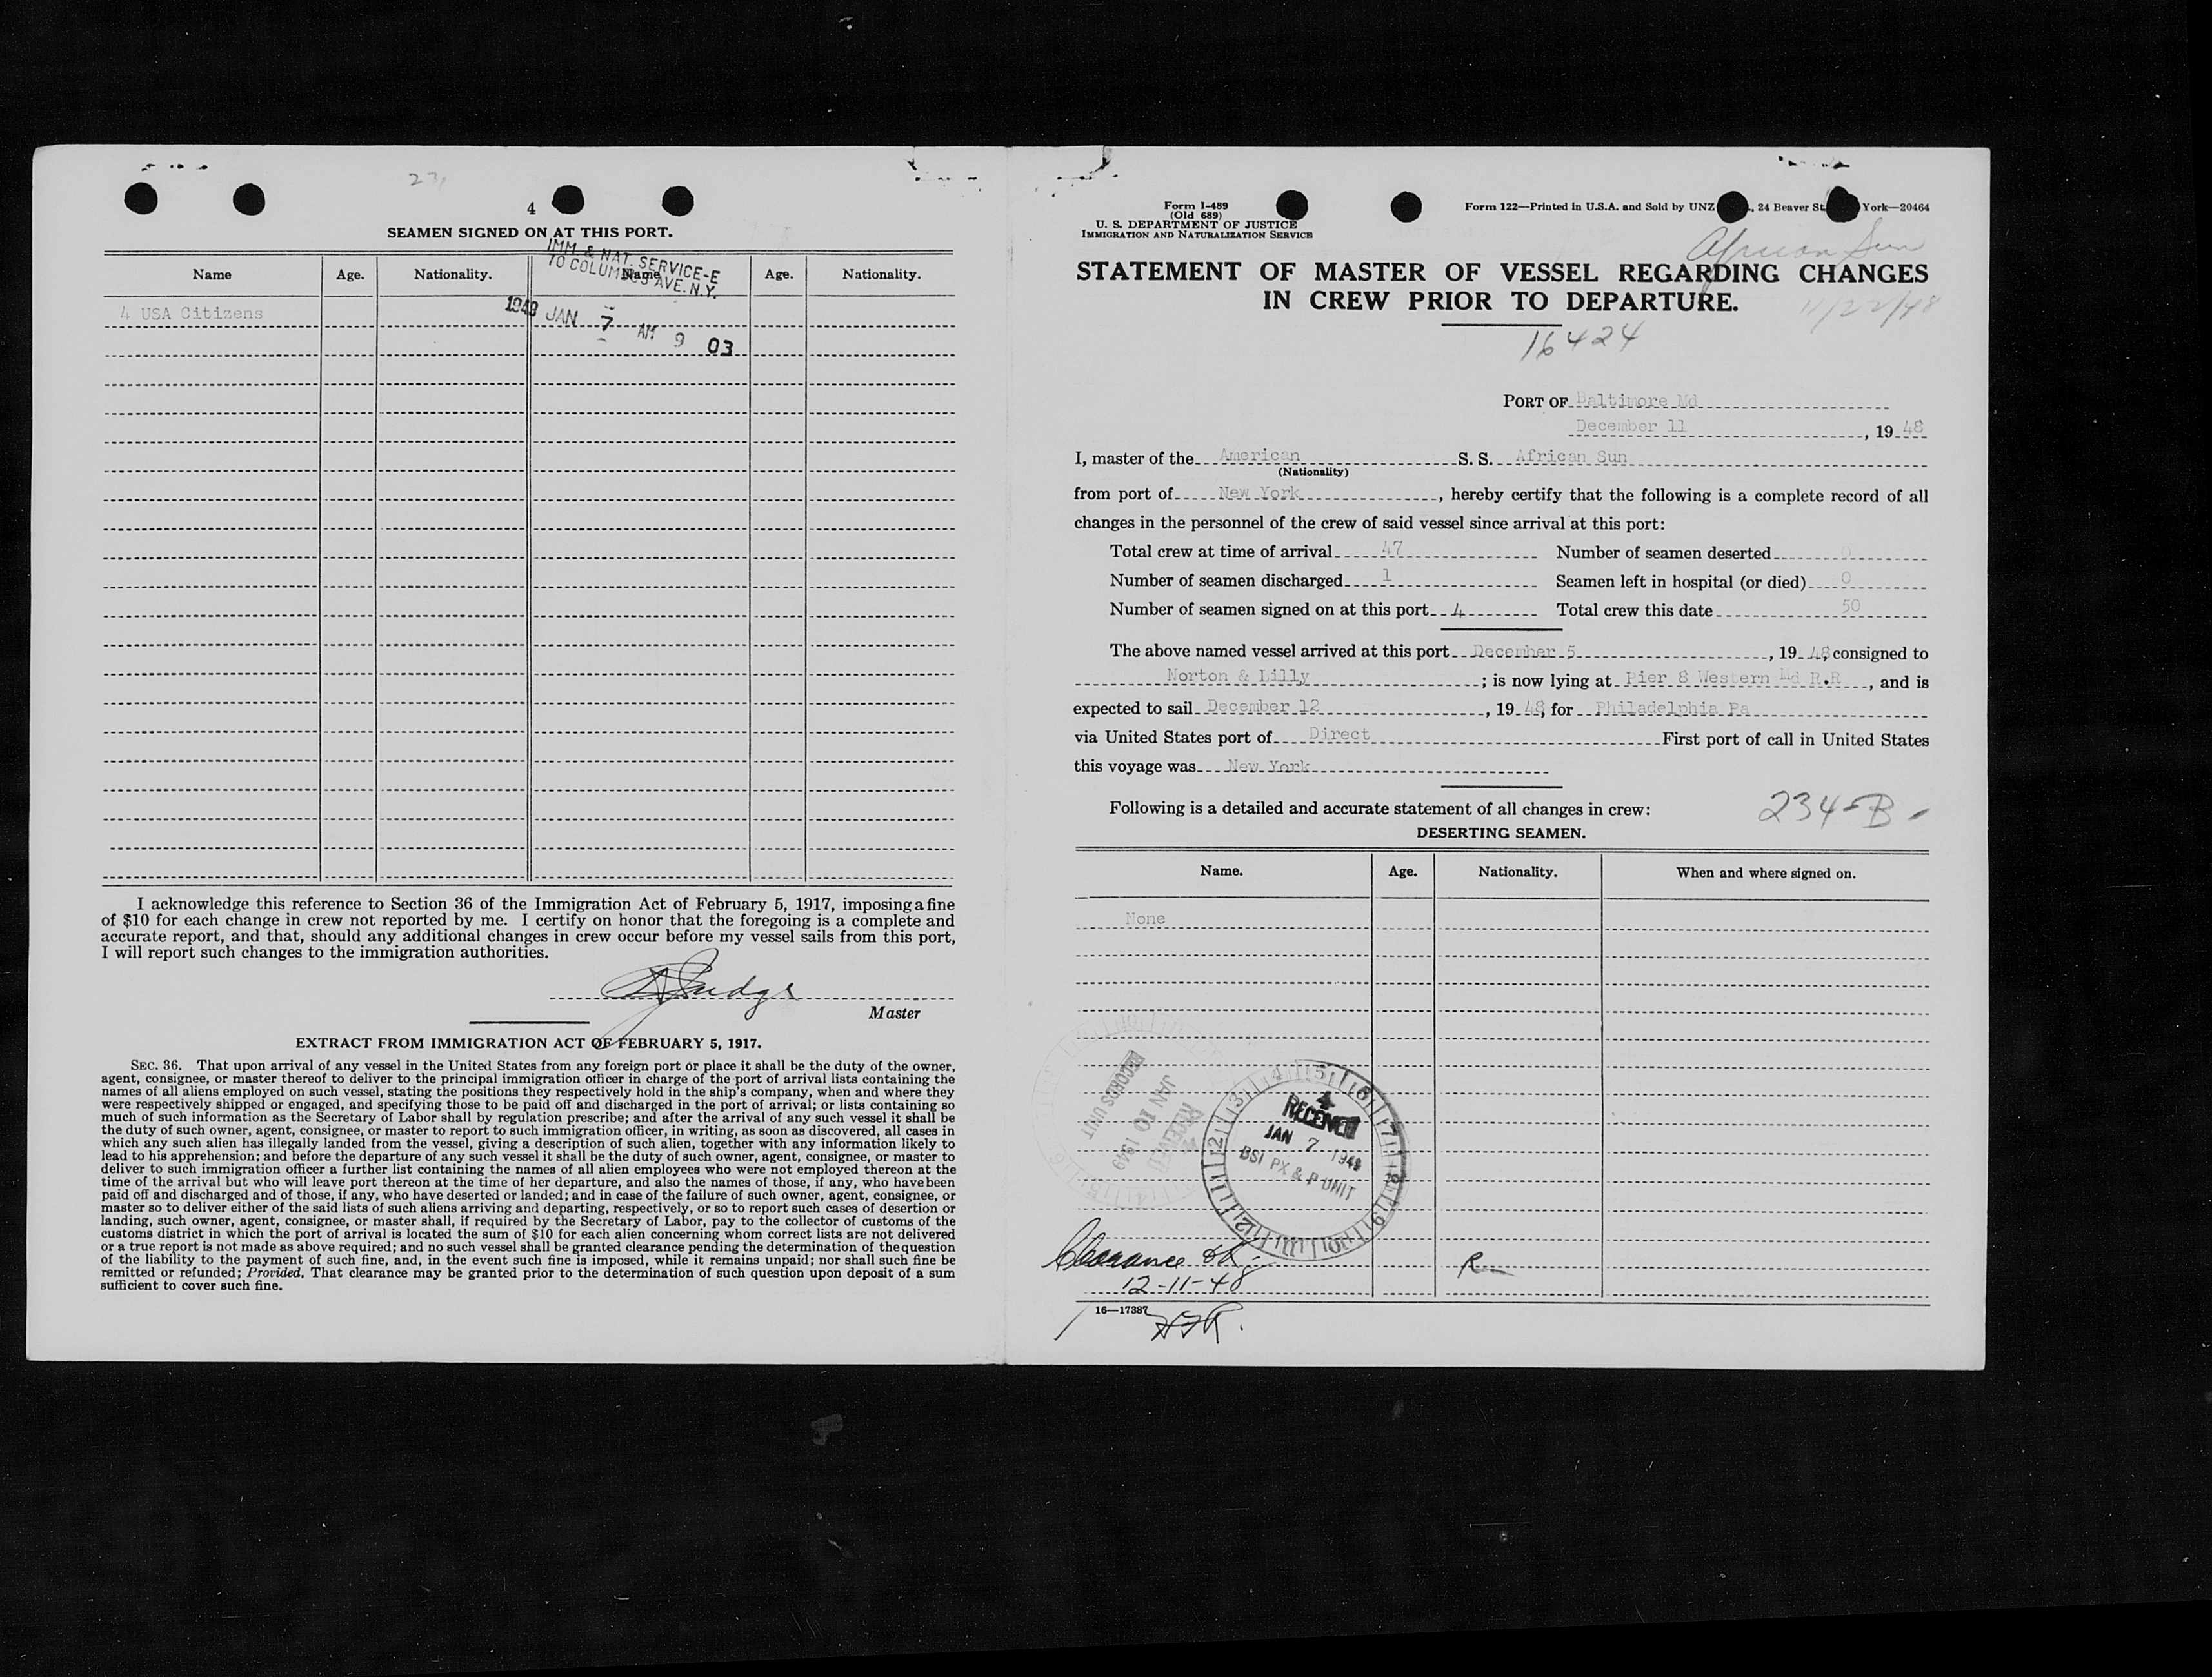 23
4
SEAMEN SIGNED ON AT THIS PORT.
Name Age. Nationality. Name Age. Nationality.
IMM. & NAT. SERVICE-E
70 COLUMBUS AVE. N.Y.
4 USA Citizens
1949 JAN 7 AM 9 03
I acknowledge this reference to Section 36 of the Immigration Act of February 5, 1917, imposing a fine
of $10 for each change in crew not reported by me. I certify on honor that the foregoing is a complete and
accurate report, and that, should any additional changes in crew occur before my vessel sails from this port,
I will report such changes to the immigration authorities.
Judge
Master
EXTRACT FROM IMMIGRATION ACT OF FEBRUARY 5, 1917.
SEC. 36. That upon arrival of any vessel in the United States from any foreign port or place it shall be the duty of the owner,
agent, consignee, or master thereof to deliver to the principal immigration officer in charge of the port of arrival lists containing the
names of all aliens employed on such vessel, stating the positions they respectively hold in the ship's company, when and where they
were respectively shipped or engaged, and specifying those to be paid off and discharged in the port of arrival; or lists containing so
much of such information as the Secretary of Labor shall by regulation prescribe; and after the arrival of any such vessel it shall be
the duty of such owner, agent, consignee, or master to report to such immigration officer, in writing, as soon as discovered, all cases in
which any such alien has illegally landed from the vessel, giving a description of such alien, together with any information likely to
lead to his apprehension; and before the departure of any such vessel it shall be the duty of such owner, agent, consignee, or master to
deliver to such immigration officer a further list containing the names of all alien employees who were not employed thereon at the
time of the arrival but who will leave port thereon at the time of her departure, and also the names of those, if any, who have been
paid off and discharged and of those, if any, who have deserted or landed; and in case of the failure of such owner, agent, consignee, or
master so to deliver either of the said lists of such aliens arriving and departing, respectively, or so to report such cases of desertion or
landing, such owner, agent, consignee, or master shall, if required by the Secretary of Labor, pay to the collector of customs of the
customs district in which the port of arrival is located the sum of $10 for each alien concerning whom correct lists are not delivered
or a true report is not made as above required; and no such vessel shall be granted clearance pending the determination of the question
of the liability to the payment of such fine, and, in the event such fine is imposed, while it remains unpaid; nor shall such fine be
remitted or refunded; Provided, That clearance may be granted prior to the determination of such question upon deposit of a sum
sufficient to cover such fine.
Form I-489
(Old 689)
U. S. DEPARTMENT OF JUSTICE
IMMIGRATION AND NATURALIZATION SERVICE
Form 122—Printed in U.S.A. and Sold by UNZ , 24 Beaver St. York—20464
African Sun
STATEMENT OF MASTER OF VESSEL REGARDING CHANGES
IN CREW PRIOR TO DEPARTURE.
11/22/48
16424
PORT OF Baltimore Md
December 11, 19 48
I, master of the American S. S. African Sun
(Nationality)
from port of New York, hereby certify that the following is a complete record of all
changes in the personnel of the crew of said vessel since arrival at this port:
Total crew at time of arrival 47 Number of seamen deserted 0
Number of seamen discharged 1 Seamen left in hospital (or died) 0
Number of seamen signed on at this port 4 Total crew this date 50
The above named vessel arrived at this port December 5, 19 48, consigned to
Norton & Lilly; is now lying at Pier 8 Western Md R.R, and is
expected to sail December 12, 19 48, for Philadelphia Pa
via United States port of Direct First port of call in United States
this voyage was New York
Following is a detailed and accurate statement of all changes in crew:
234-B-
DESERTING SEAMEN.
Name. Age. Nationality. When and where signed on.
None
RECORDS UNIT
JAN 10 1949
RECEIVED
4
RECEIVED
JAN 7 1949
BSI PX & P UNIT
Clearance OK
12-11-48
R
16—17387